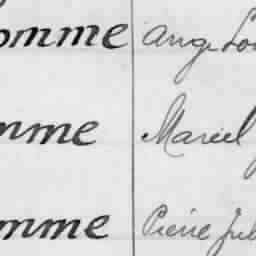 omme Ange Lou
mme Marcel
omme Pierre Jul